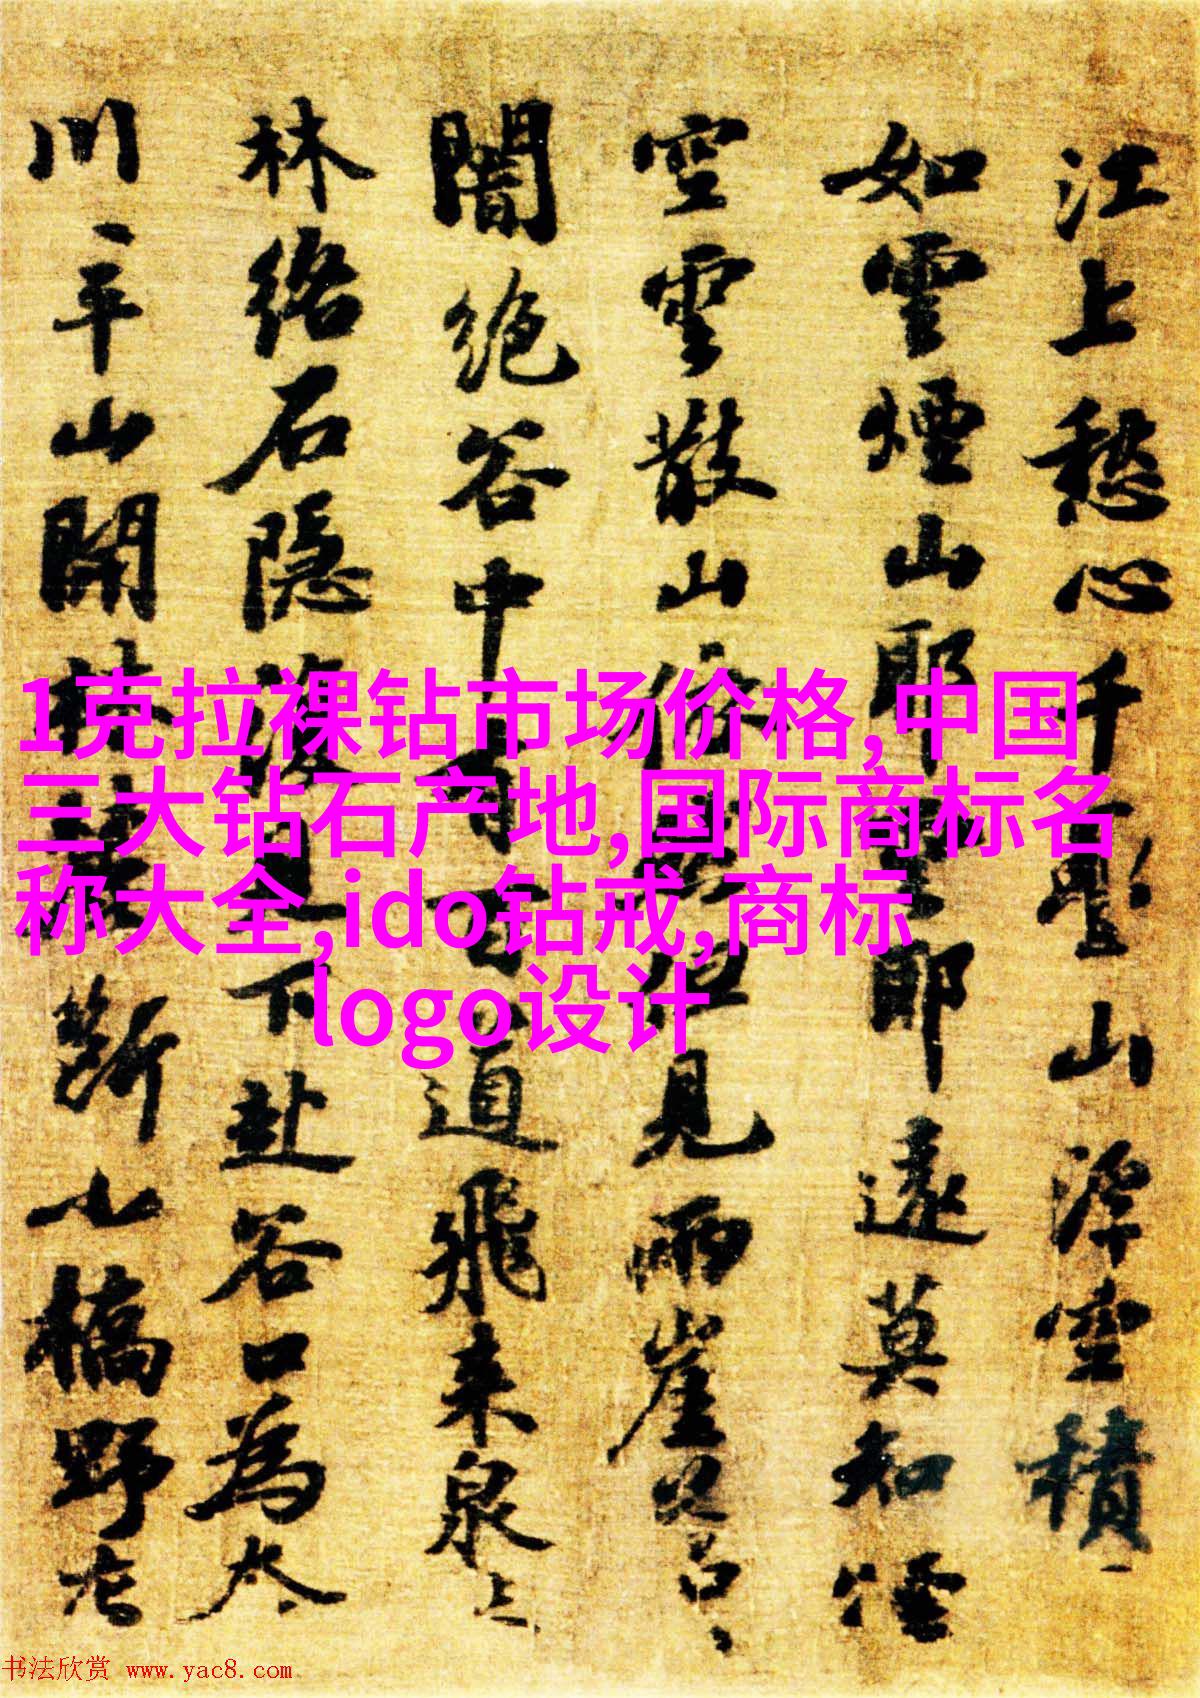 江上愁心千疊山浮空積
如雲煙山耶雲耶遠莫知煙
空雲散山依然但見兩崖蒼
闇絕谷中有百道飛來泉
林絡石隱復見下赴谷口為
川平山開林麓斷小橋野店
1克拉裸钻市场价格,中国
三大钻石产地,国际商标名
称大全,ido钻戒,商标
logo设计
书法欣赏 www.yac8.com